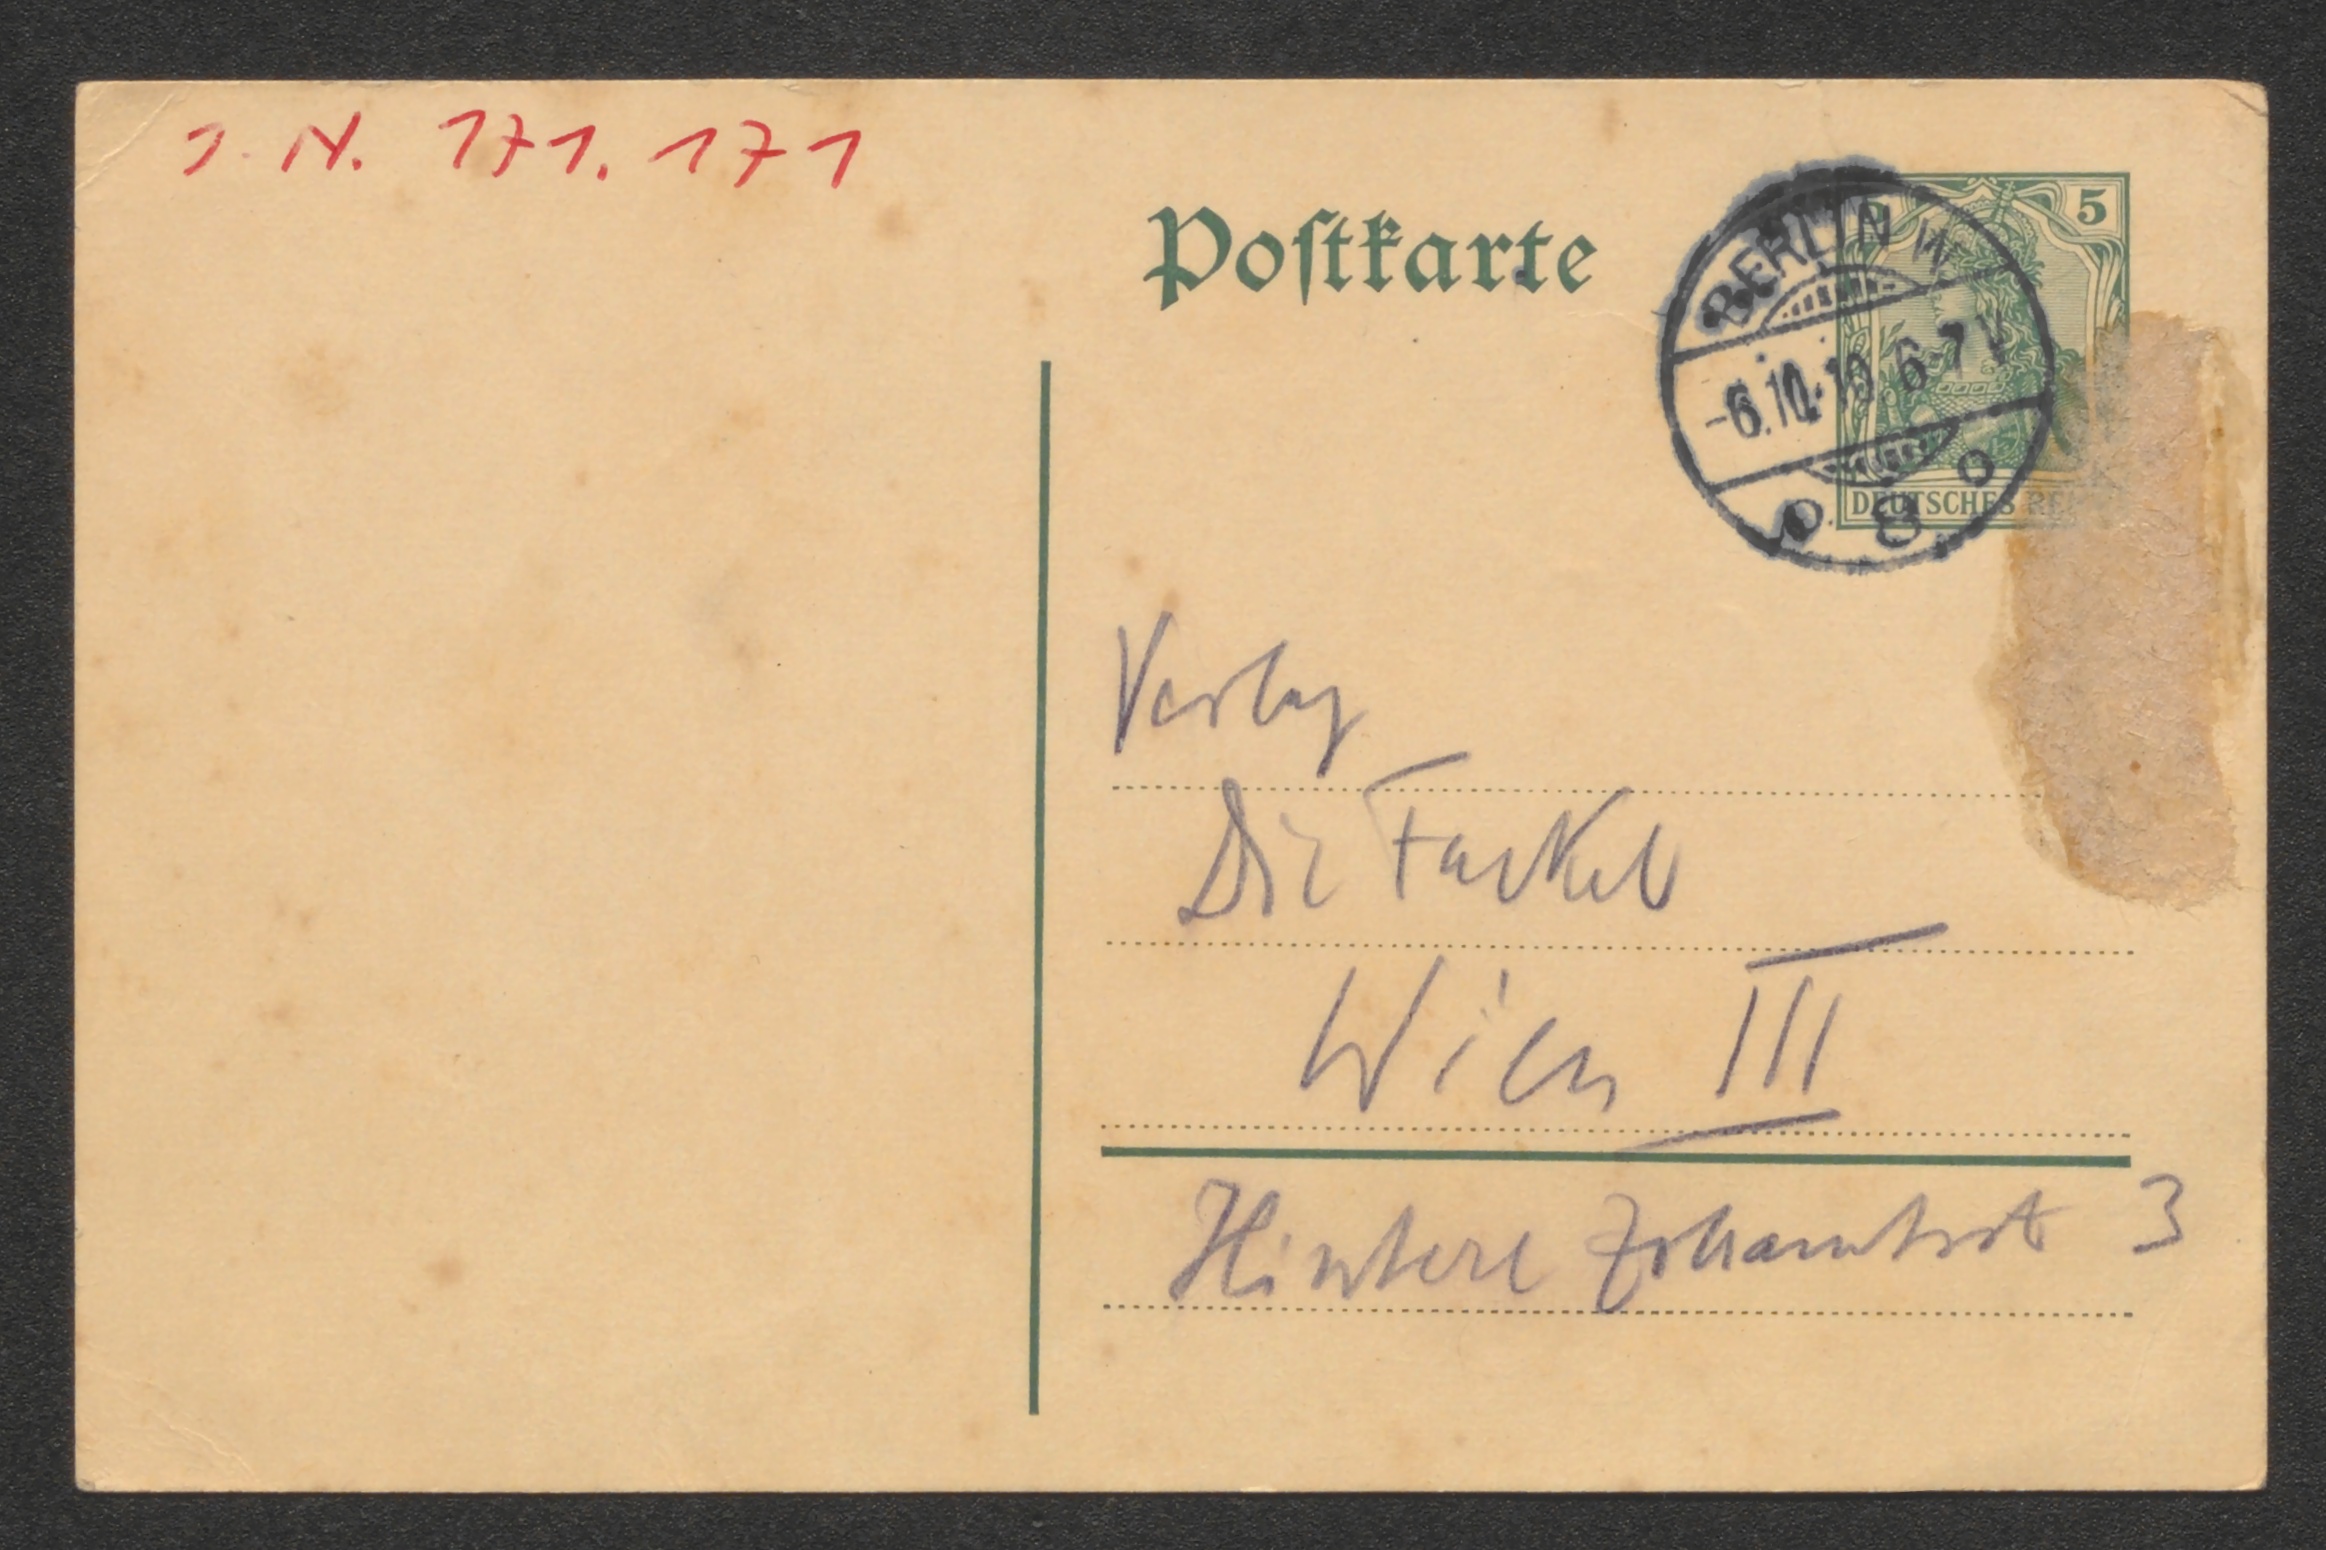 J. N. 171.171
Postkarte
5
BERLIN W
-6.10.10. 6-7 V
8
DEUTSCHES REI
Verlag
Die Fackel
Wien III
Hintere Zollamtsst 3